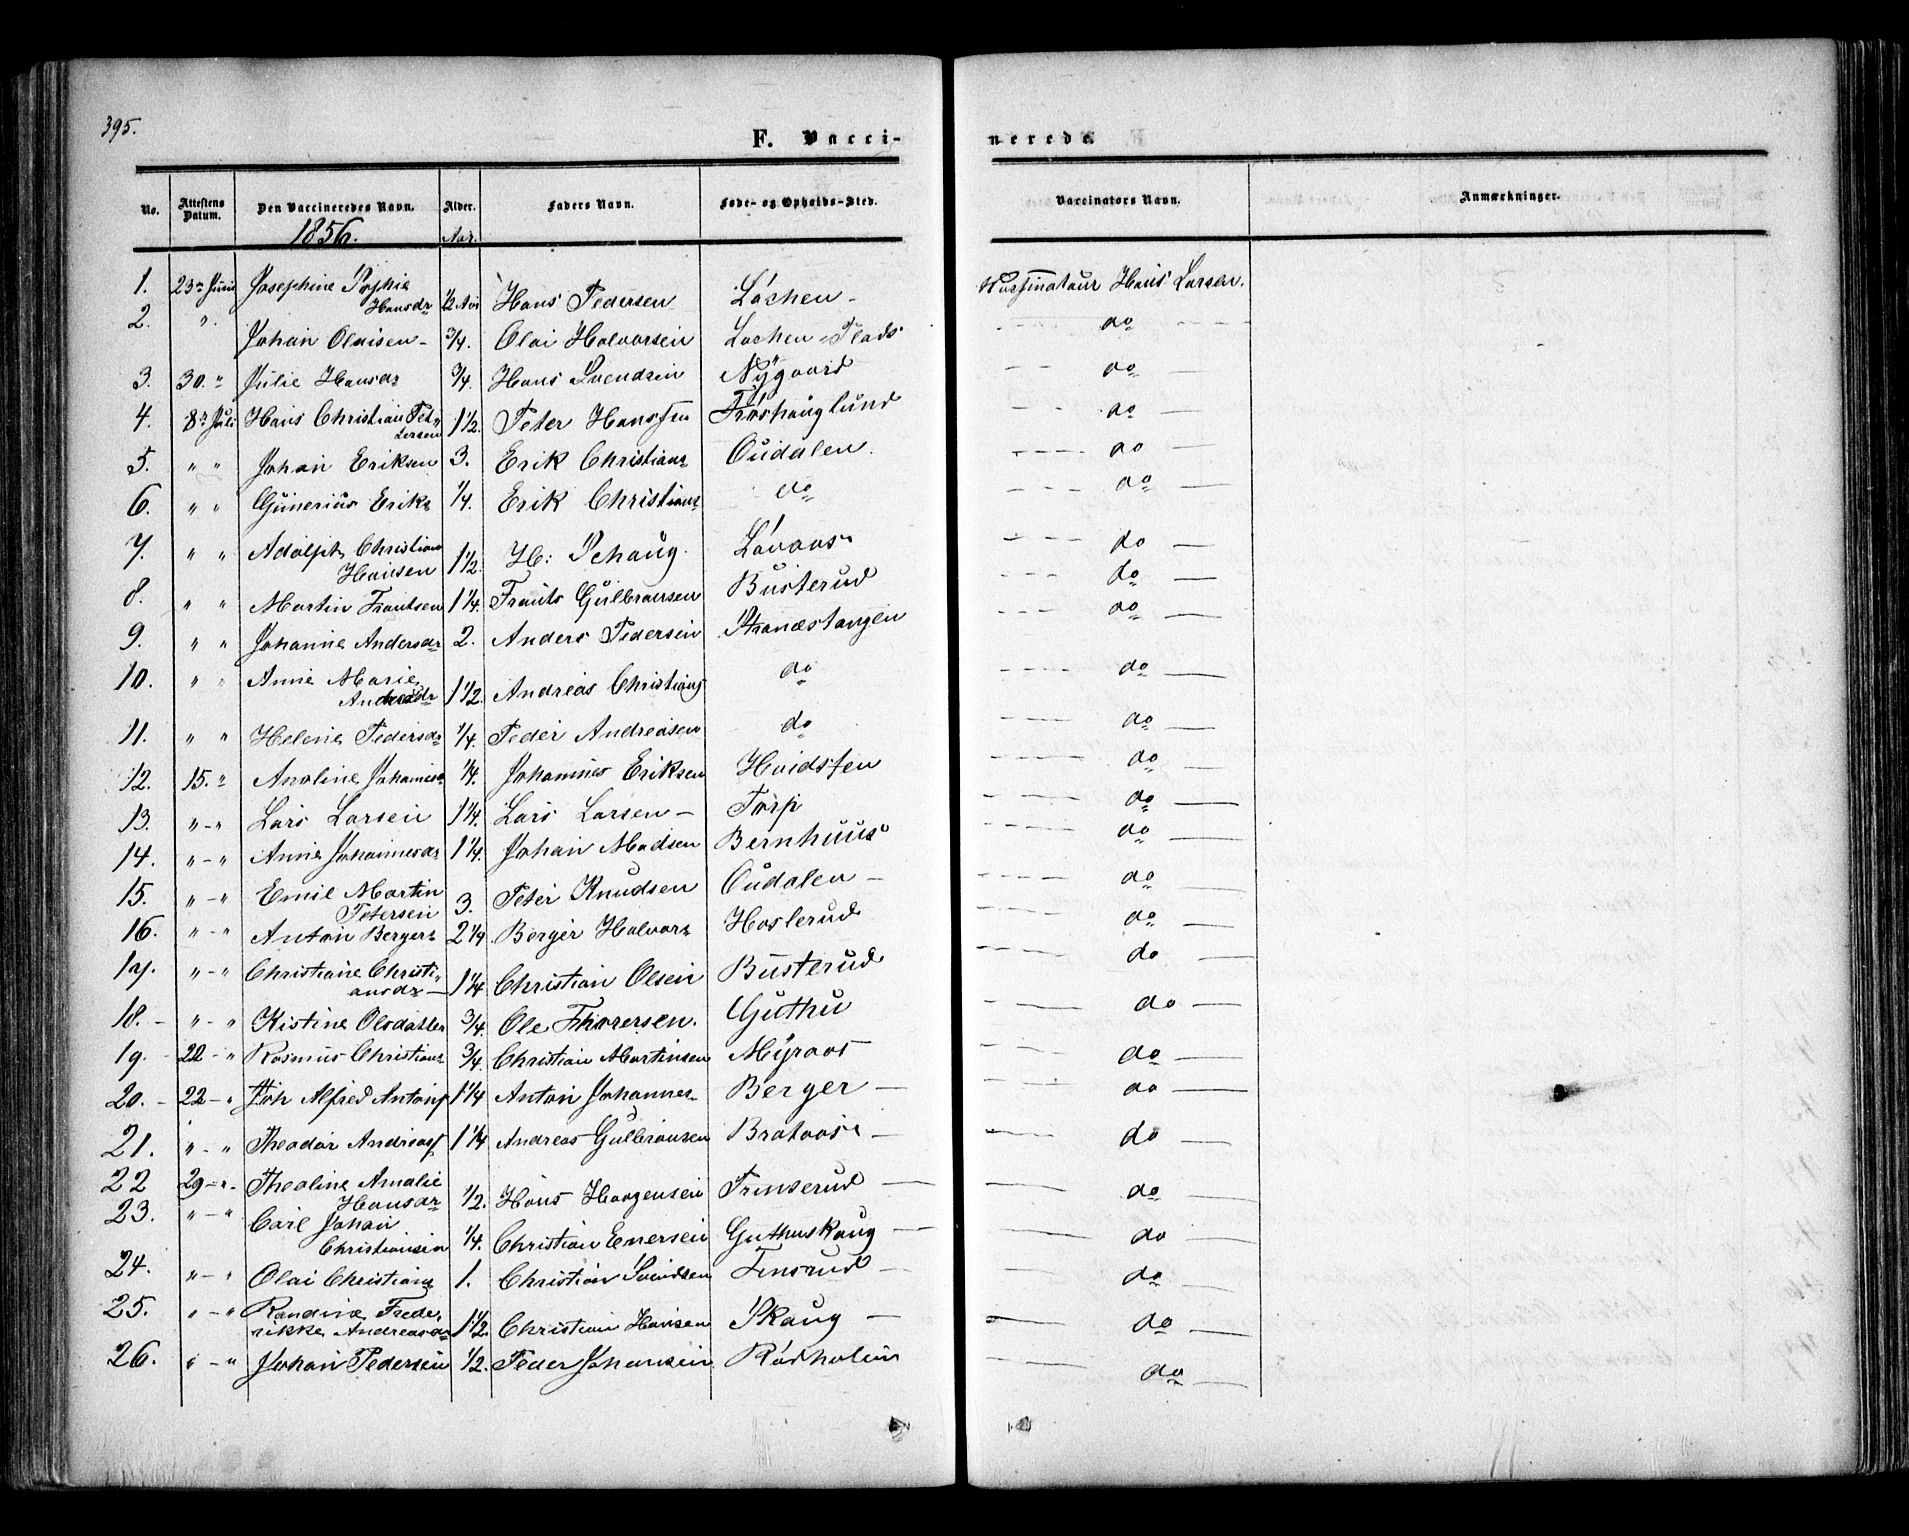 395.
F. Vacci- nerede.
No. Attestens Datum. Den Vaccineredes Navn. Alder. Faders Navn. Føde- og Opholds-Sted. Vaccinators Navn. Anmærkninger.
1856. Aar.
1. 23de Juni Josephine Sophie
Hansdr ½ Aar Hans Pedersen Løchen - Hans Larsen.
2. " Johan Olaisen - ¾. Olai Halvorsen Lochen Plads do
3. 30. " Julie Hansdr ¾. Hans Svendsen Nÿgaard do
4. 8de Juli Hans Christian Pet-
tersen 1½. Peter Hanssen Frøshauglund do
5. " " Johan Eriksen 3. Erik Christians Oudalen. do
6. " " Gunerius Eriks ¼. Erik Christians do do
7. " " Adolph Christian
Hansen 1½. H: Schaug. Løvaas do
8. " " Martin Frantsen 1¼. Frants Gulbransen Busterud do
9. " " Johanne Andersdr 2. Anders Pedersen Stranæstangen do
10. " " Anne Marie
Andreasdr 1½. Andreas Christians do do
11. " " Helene Pedersdr ¼. Peder Andreasen do do
12. 15. " Anoline Johannesdr ¼. Johannes Eriksen Hvidsten do
13. " - " Lars Larsen 1¼. Lars Larsen - Torp do
14. " - " Anne Johannesdr 1¼. Johan Madsen Bernhuus do
15. " - " Emil Martin
Petersen 3. Peter Knudsen Oudalen - do
16. " - " Anton Bergers 2¼. Berger Halvors Haslerud do
17. " - " Christiane Christi-
ansdr - 1¼ Christian Olsen Busterud do
18. - " - " Kistine Olsdatter ¾. Ole Thoresen. Guthu do
19. - 22 - " Rasmus Christians ¾. Christian Martinsen Myraas do
20. - 22 - " Joh Alfred Antons 1¼ Anton Johannes Berger - do
21. " - " Theodor Andreass 1¼ Andreas Gulbransen Brataas - do
22 29 - " - Theoline Amalie
Hansdr ½. Hans Haagensen - do
23. " - " Carl Johan
Christiansen ¼. Christian Enersen Guthuskaug - do
24. " - " Olai Christians 1. Christian Svendsen - do
25. " - " Randine Frede-
rikke Andreasdr 1½. Christian Hansen Skaug - do
26. " - " Johan Pedersen ½. Peder Johansen Rødholen do